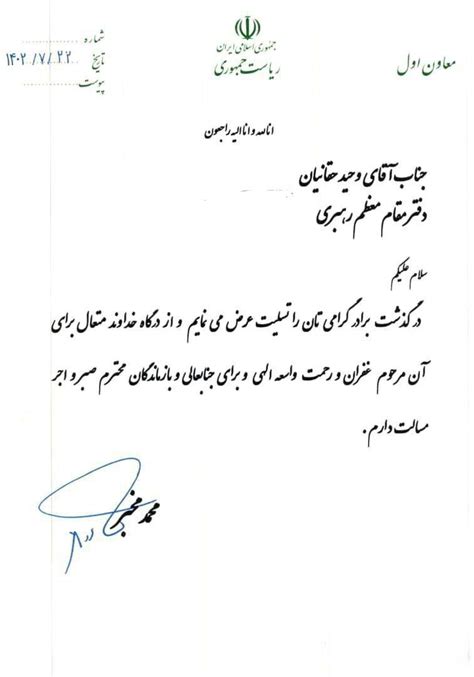 جمهوری اسلامی ایران
ریاست جمهوری
معاون اول
شماره
تاریخ ۱۴۰۲/۷/۲۲
پیوست
انا لله و انا الیه راجعون
جناب آقای وحید حقانیان
دفتر مقام معظم رهبری
سلام علیکم
درگذشت برادر گرامی تان را تسلیت عرض می نمایم و از درگاه خداوند متعال برای
آن مرحوم غفران و رحمت واسعه الهی و برای جنابعالی و بازماندگان محترم صبر و اجر
مسالت دارم.
محمد مخبر